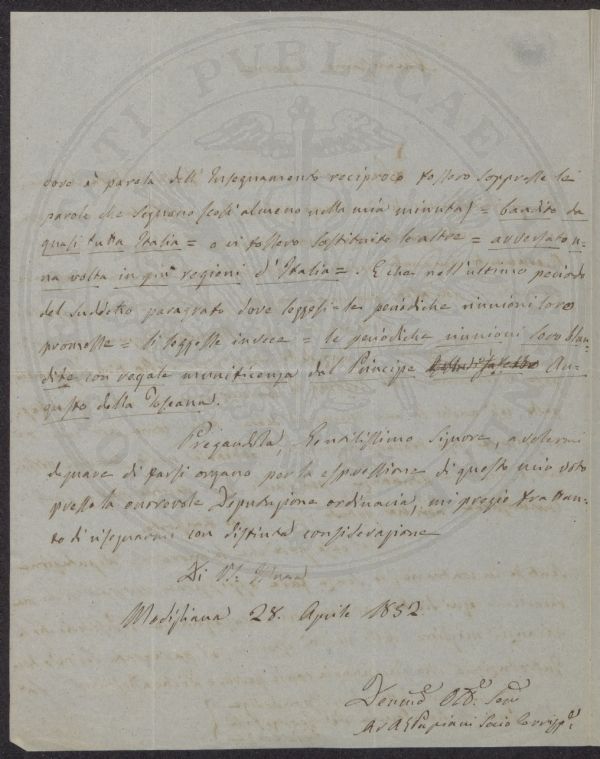 dove si parla dell' Insegnamento reciproco fossero soppresse le
parole che seguono (così almeno nella mia minuta) = bandito da
quasi tutta Italia = o vi fossero sostituite le altre = avversato u-
na volta in più regioni d' Italia =. E che nell' ultimo periodo
del suddetto paragrafo dove leggesi = le periódiche riunioni loro
promosse = si leggesse invece = le periódiche riunioni loro blan-
dite con regale munificenza dal Principe Au-
gusto della Toscana.
Pregandola, Gentilissimo Signore, a volermi
degnare di farsi organo per la espressione di questo mio voto
presso la onorevole Deputazione ordinaria, mi pregio frattan-
to di rassegnarmi con distinta considerazione
Di VS. Illma
Modigliana 28. Aprile 1852.
Devmo Obb. Servo
Socio Corrispe